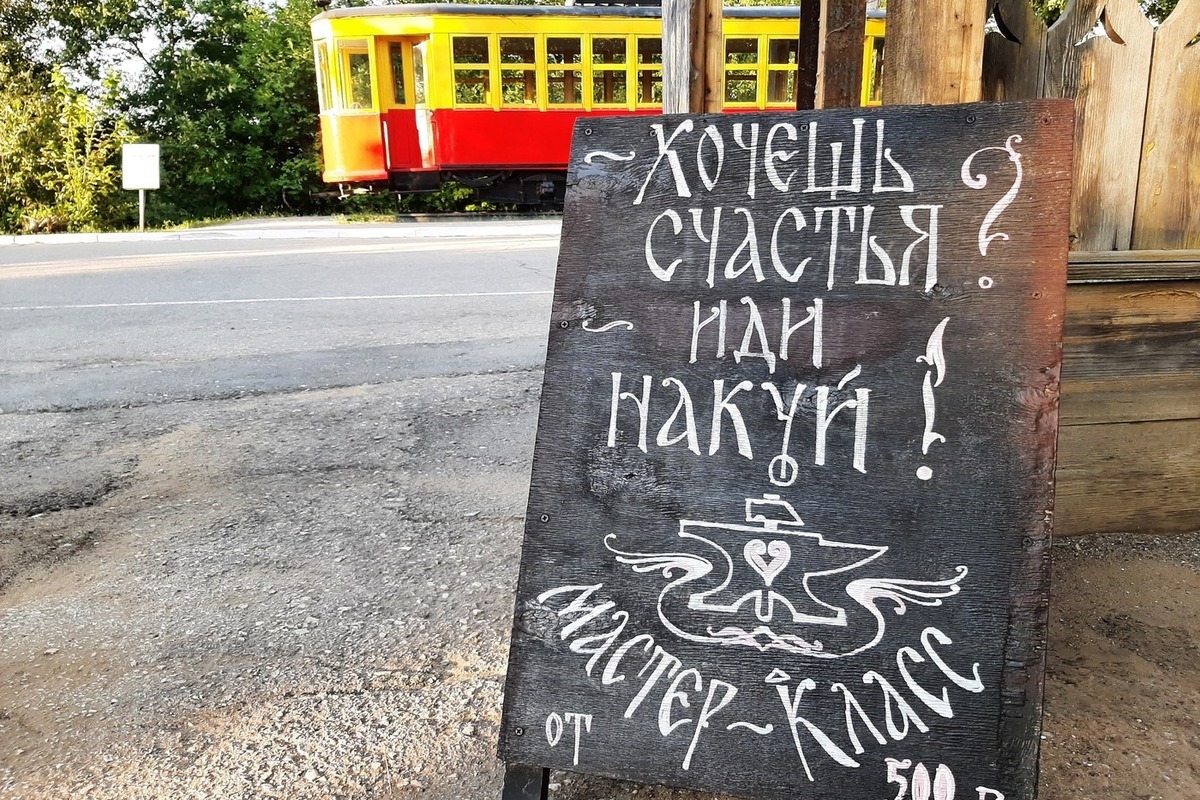 ~ХОЧЕШЬ
СЧАСТЬЯ?
~ ИДИ
НАКУЙ!
МАСТЕР~КЛАСС
ОТ 500 Р